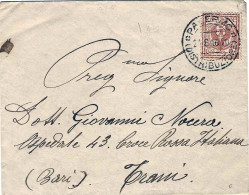 Preg.mo Signore
Dott. Giovanni Nocera
Ospedale 43. Croce Rossa Italiana
(Bari) Trani